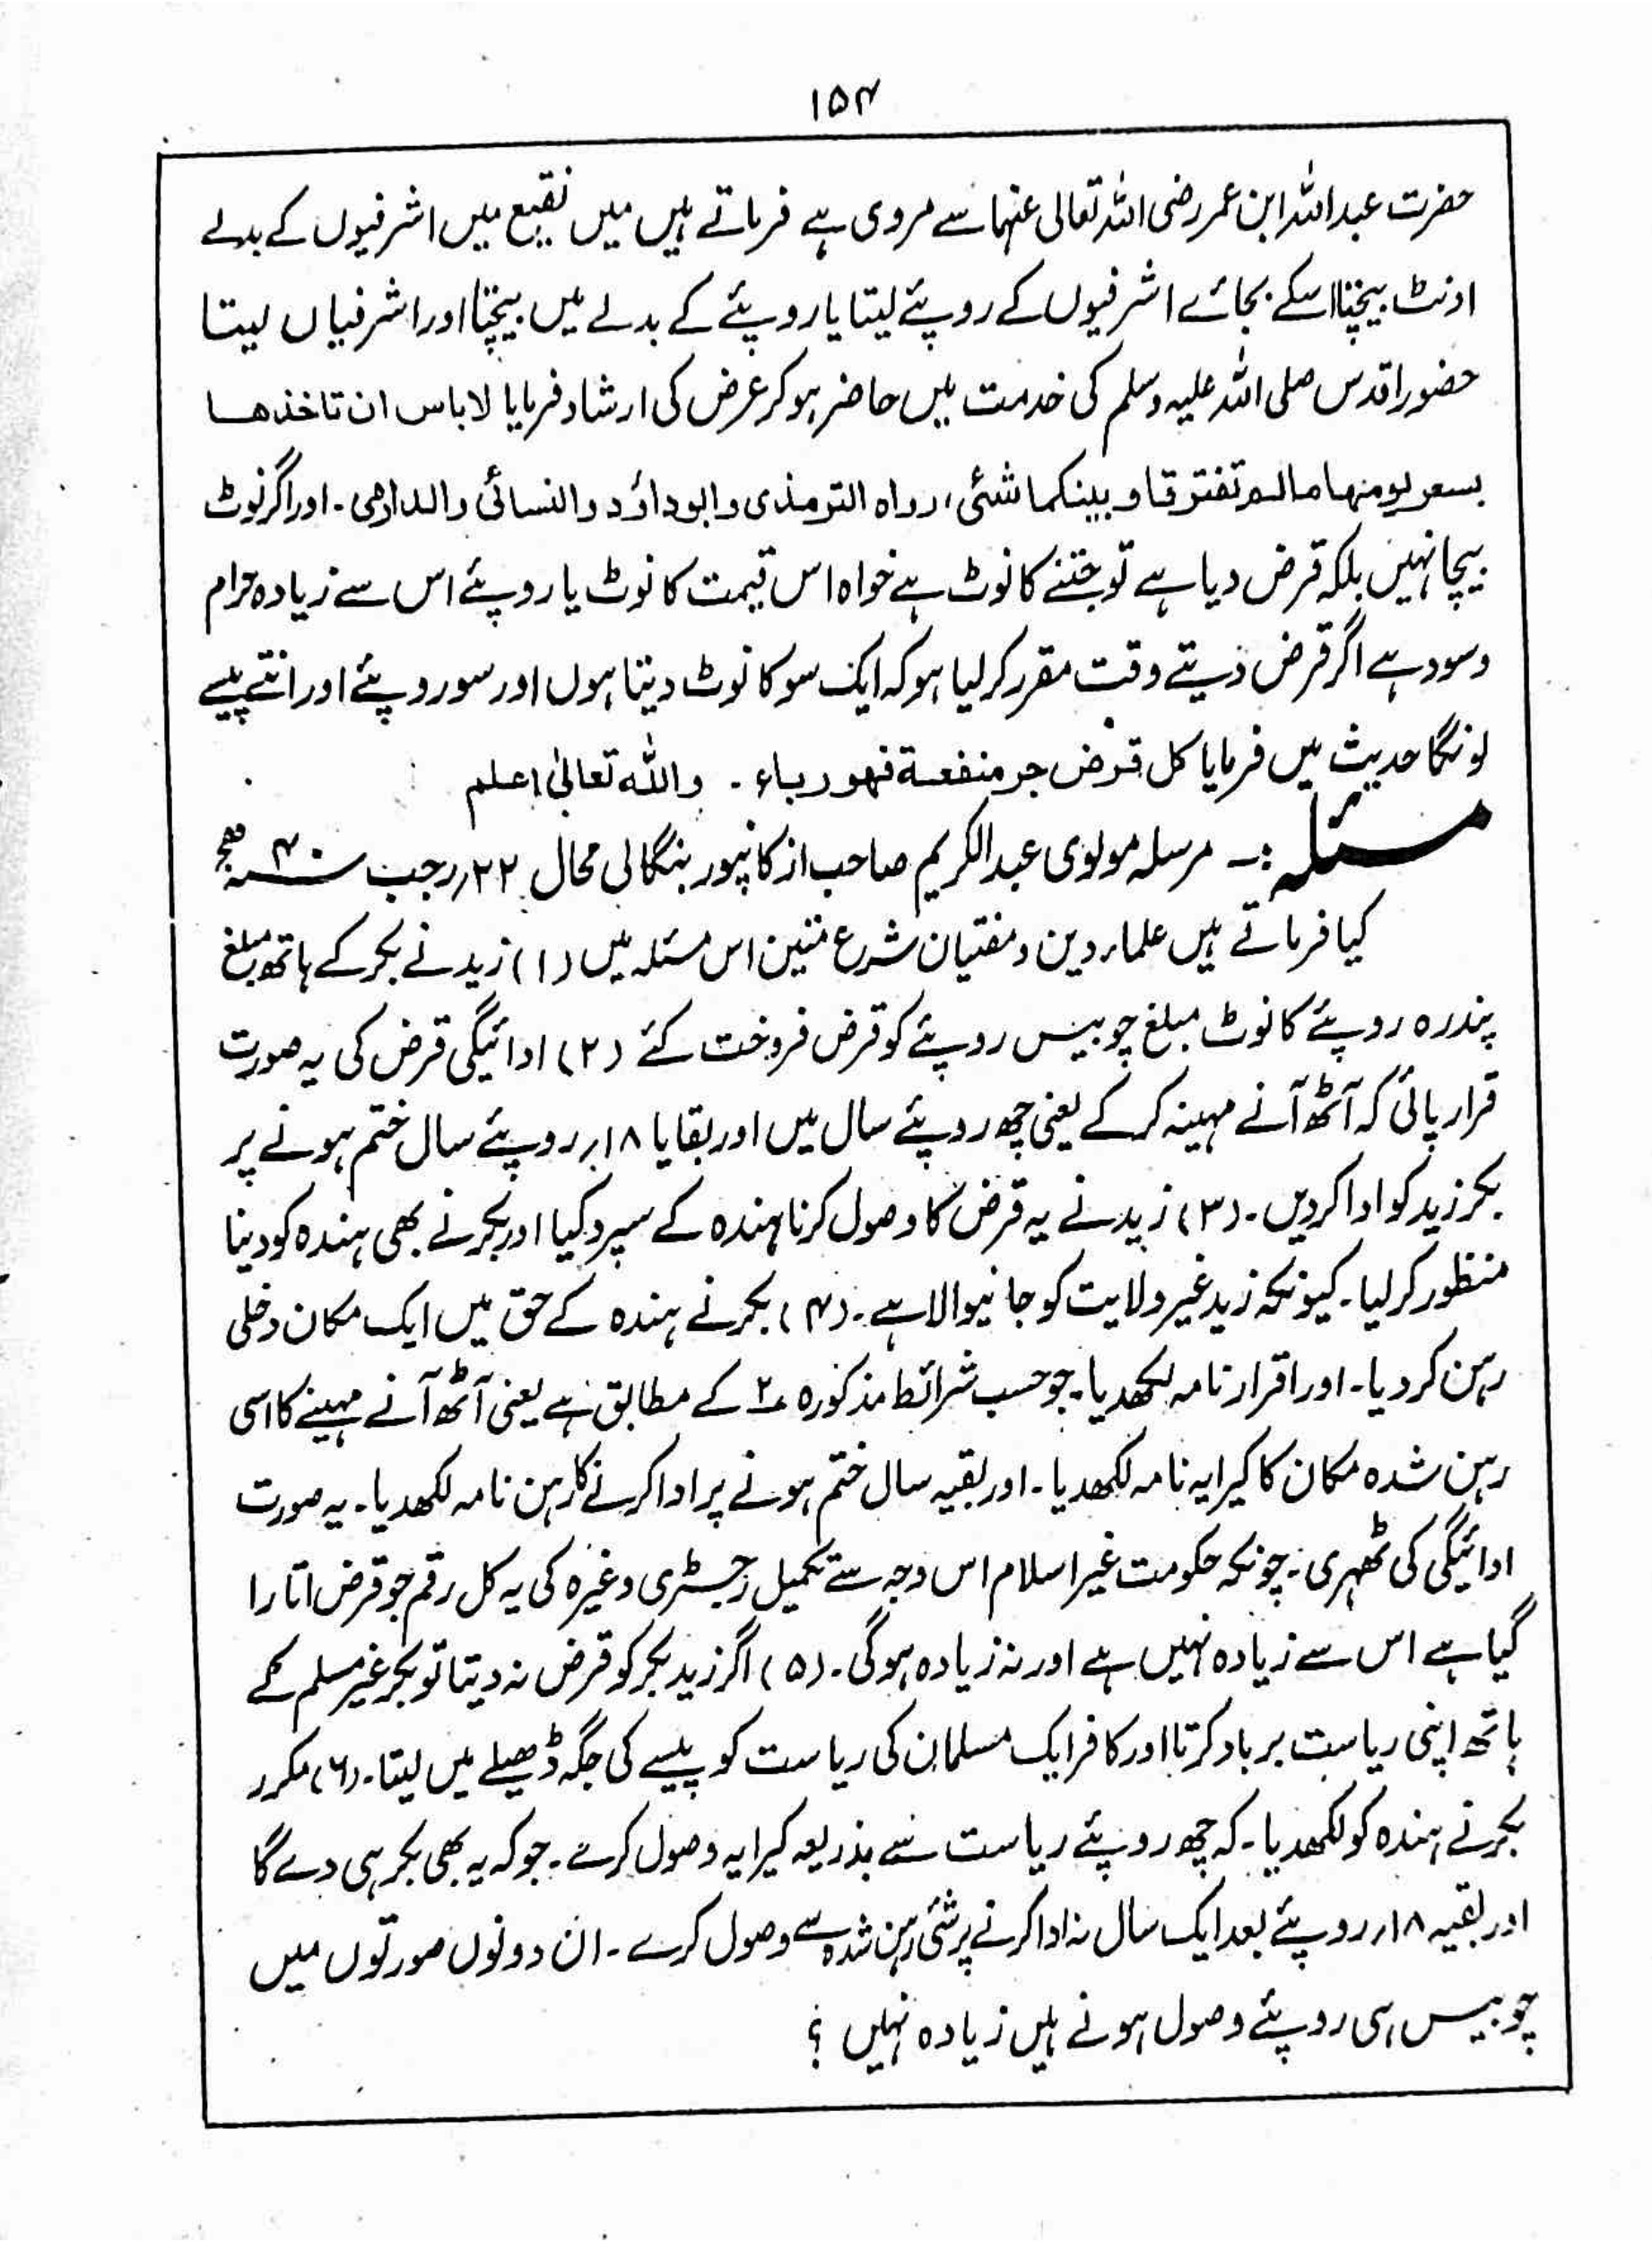 ۱۵۴
حضرت عبداللہ ابن عمر رضی اللہ تعالی عنہما سے مروی ہے فرماتے ہیں میں نقیع میں اشرفیوں کے بدلے
اونٹ بیچتا اسکے بجائے اشرفیوں کے روپئے لیتا یا روپئے کے بدلے میں بیچتا اور اشرفیاں لیتا
حضور اقدس صلی اللہ علیہ وسلم کی خدمت میں حاضر ہو کر عرض کی ارشاد فرمایا لا باس ان تاخذھا
بسعر یومنہا مالم تفترقا و بینکما شئی، رواہ الترمذی وابوداؤد والنسائی والدارمی۔ اور اگر نوٹ
بیچا نہیں بلکہ قرض دیا ہے تو جتنے کا نوٹ ہے خواہ اس قیمت کا نوٹ یا روپئے اس سے زیادہ حرام
وسود ہے اگر قرض دیتے وقت مقرر کر لیا ہو کہ ایک سو کا نوٹ دیتا ہوں اور سو روپئے اور اتنے پیسے
لونگا حدیث میں فرمایا کل قرض جر منفعۃ فھو رباء ۔ واللہ تعالیٰ اعلم
مسئلہ :۔ مرسلہ مولوی عبدالکریم صاحب از کانپور بنگالی محال ۲۲؍رجب ۴۰ سنہ ھج
کیا فرماتے ہیں علماء دین و مفتیان شرع متین اس مسئلہ میں (۱) زید نے بکر کے ہاتھ مبلغ
پندرہ روپئے کا نوٹ مبلغ چوبیس روپئے کو قرض فروخت کئے (۲) ادائیگی قرض کی یہ صورت
قرار پائی کہ آٹھ آنے مہینہ کر کے یعنی چھ روپئے سال میں اور بقایا ۱۸؍ روپئے سال ختم ہونے پر
بکر زید کو ادا کردیں۔ (۳) زید نے یہ قرض کا وصول کرنا ہندہ کے سپرد کیا اور بکر نے بھی ہندہ کو دینا
منظور کر لیا۔ کیونکہ زید غیر ولایت کو جانیوالا ہے۔ (۴) بکر نے ہندہ کے حق میں ایک مکان دخلی
رہن کر دیا۔ اور اقرار نامہ لکھدیا۔ جو حسب شرائط مذکورہ ۲ کے مطابق ہے یعنی آٹھ آنے مہینے کا اسی
رہن شدہ مکان کا کیرایہ نامہ لکھدیا۔ اور بقیہ سال ختم ہونے پر ادا کرنے کا رہن نامہ لکھدیا۔ یہ صورت
ادائیگی کی ٹھہری۔ چونکہ حکومت غیر اسلام اس وجہ سے تکمیل رجسٹری وغیرہ کی یہ کل رقم جو قرض اتارا
گیا ہے اس سے زیادہ نہیں ہے اور نہ زیادہ ہوگی۔ (۵) اگر زید بکر کو قرض نہ دیتا تو بکر غیر مسلم کے
ہاتھ اپنی ریاست برباد کرتا اور کافر ایک مسلمان کی ریاست کو پیسے کی جگہ ڈھیلے میں لیتا۔ (۶) مکرر
بکر نے ہندہ کو لکھدیا۔ کہ چھ روپئے ریاست سے بذریعہ کیرایہ وصول کرے۔ جو کہ یہ بھی بکر ہی دے گا
اور بقیہ ۱۸؍ روپئے بعد ایک سال نہ ادا کرنے پر شئی رہن شدہ سے وصول کرے۔ ان دونوں صورتوں میں
چوبیس ہی روپئے وصول ہونے ہیں زیادہ نہیں ؟